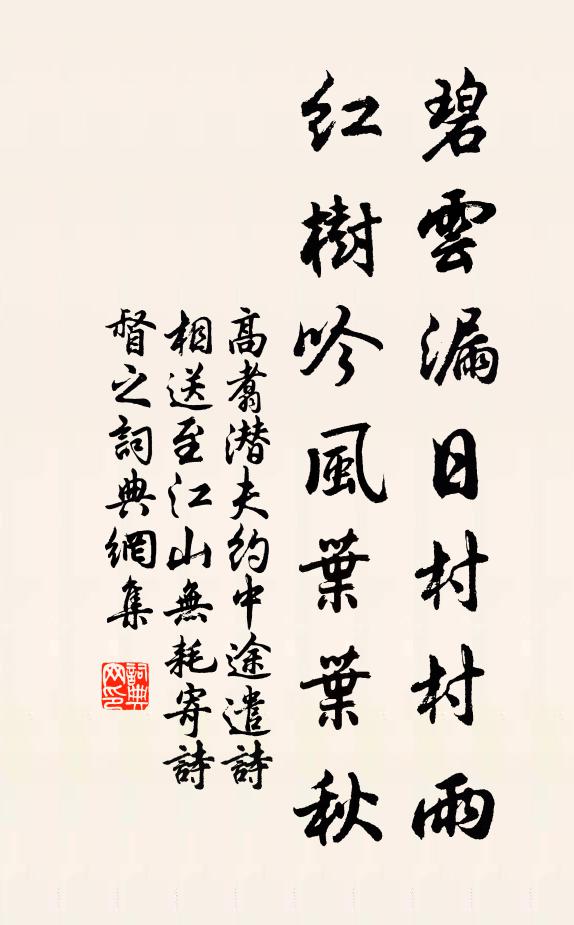 碧雲漏日村村雨
紅樹吟風葉葉秋
高翥潛夫約中途遣詩
相送至江山無耗寄詩
督之詞典網集
詞典
网印